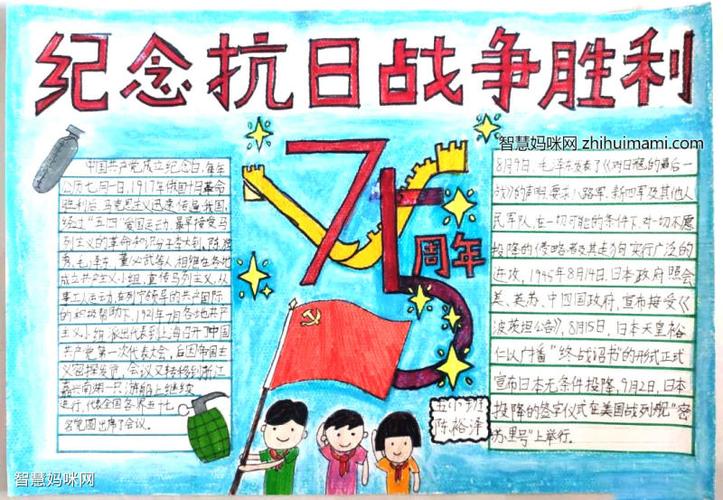 纪念抗日战争胜利
智慧妈咪网 zhihuimami.com
75
周年
中国共产党成立纪念日,每年
公历七月一日,1917年俄国十月革命
胜利后,马克思主义迅速传遍我国,
经过"五四"爱国运动,最早接受马
列主义的革命和知识分子李大钊、陈独
秀、毛泽东、董必武等人相继在各地
成立共产主义小组,宣传马列主义,从
事工人运动,在列宁领导的共产国际
的积极帮助下,1921年7月各地共产
主义小组派出代表到上海召开了中国
共产党第一次代表大会,后因帝国主
义密探发觉,会议又转移到浙江
嘉兴南湖一只游船上继续
进行,代表全国各界五十七
名党团出席了会议。
8月9日,毛泽东发表了《对日寇的最后一
战》的声明,要求八路军、新四军及其他人
民军队,在一切可能的条件下,对一切不愿
投降的侵略者及其走狗实行广泛的
进攻,1945年8月14日,日本政府照会
美、英、苏、中四国政府,宣布接受《
波茨坦公告》,8月15日,日本天皇裕
仁以广播"终战诏书"的形式正式
宣布日本无条件投降,9月2日,日本
投降的签字仪式在美国战列舰"密
苏里号"上举行.
五(1)班
陈裕泽
智慧妈咪网